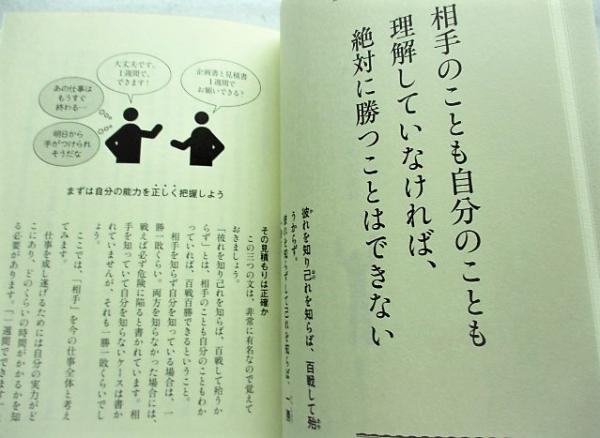 相手のことも自分のことも
理解していなければ、
絶対に勝つことはできない
彼れを知り己れを知らば、百戦して殆
うからず。
企画書と見積書
1週間で
お願いできる?
大丈夫です。
1週間で、
できます!
あの仕事は
もうすぐ
終わる…
明日から
手がつけられ
そうだな
まずは自分の能力を正しく把握しよう
その見積もりは正確か
この三つの文は、非常に有名なので覚えて
おきましょう。
「彼れを知り己れを知らば、百戦して殆うか
らず」とは、相手のことも自分のこともわか
っていれば、百戦百勝できるということ。
相手を知らず自分を知っている場合は、一
勝一敗くらい。両方を知らなかった場合には、
戦えば必ず危険に陥ると書かれています。相
手を知っていて自分を知らないケースは書か
れていませんが、それも一勝一敗くらいでし
ょう。
ここでは、「相手」を今の仕事全体と考え
てみます。
仕事を成し遂げるためには自分の実力がど
こにあり、どのくらいの時間がかかるかを知
る必要があります。「一週間でできます